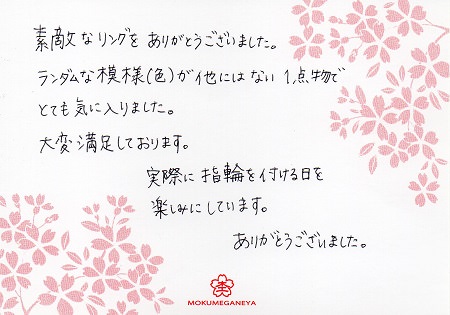 素敵なリングを ありがとうございました。
ランダムな模様(色)が他には ない 1点物で
とても気に入りました。
大変満足しております。
実際に指輪を付ける日を
楽しみにしています。
ありがとうございました。
MOKUMEGANEYA